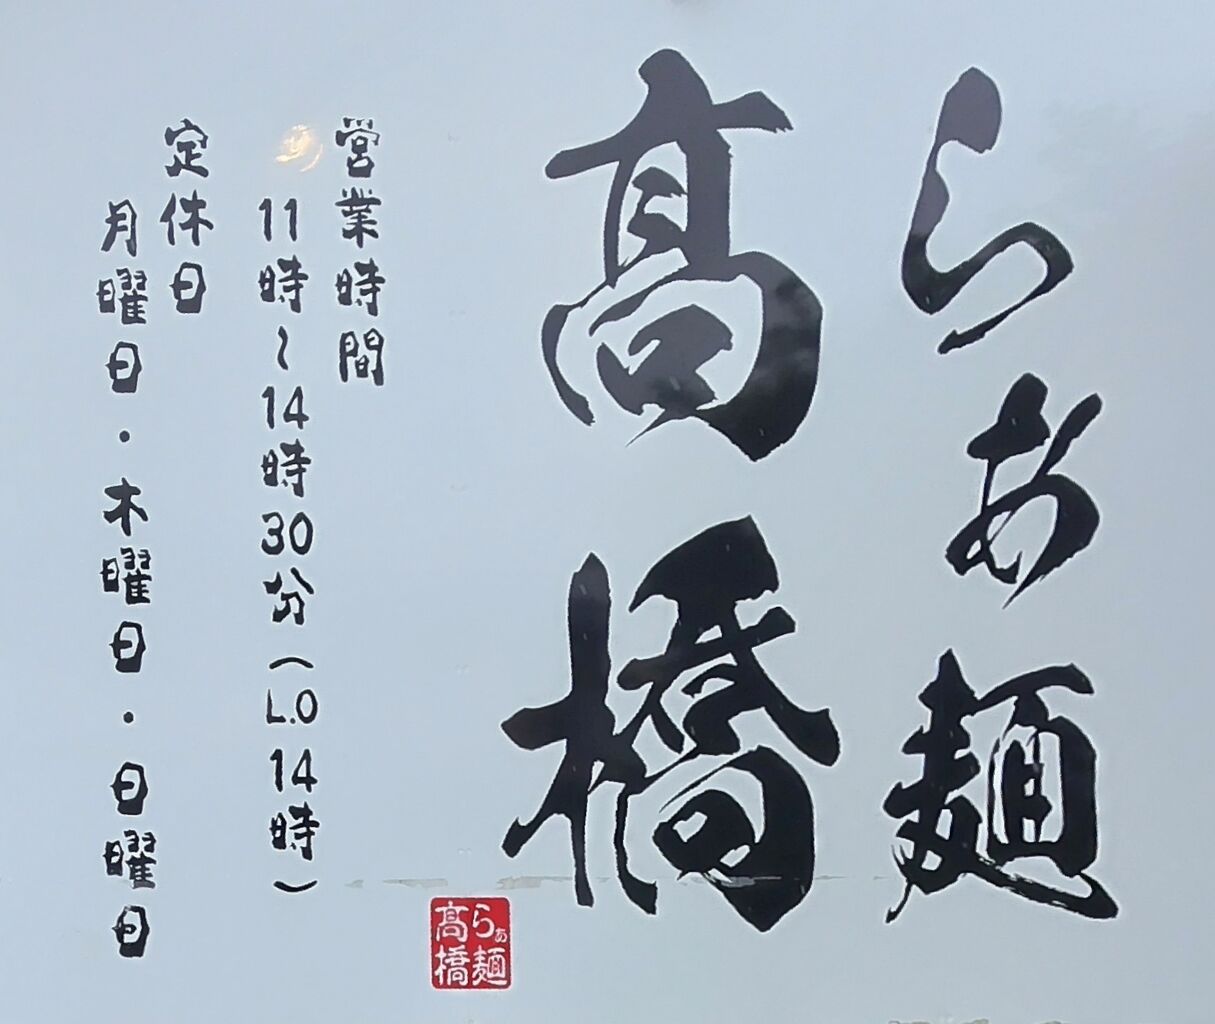 らぁ麺
髙橋
営業時間
11時〜14時30分(L.O 14時)
定休日
月曜日・木曜日・日曜日
らぁ麺
髙橋